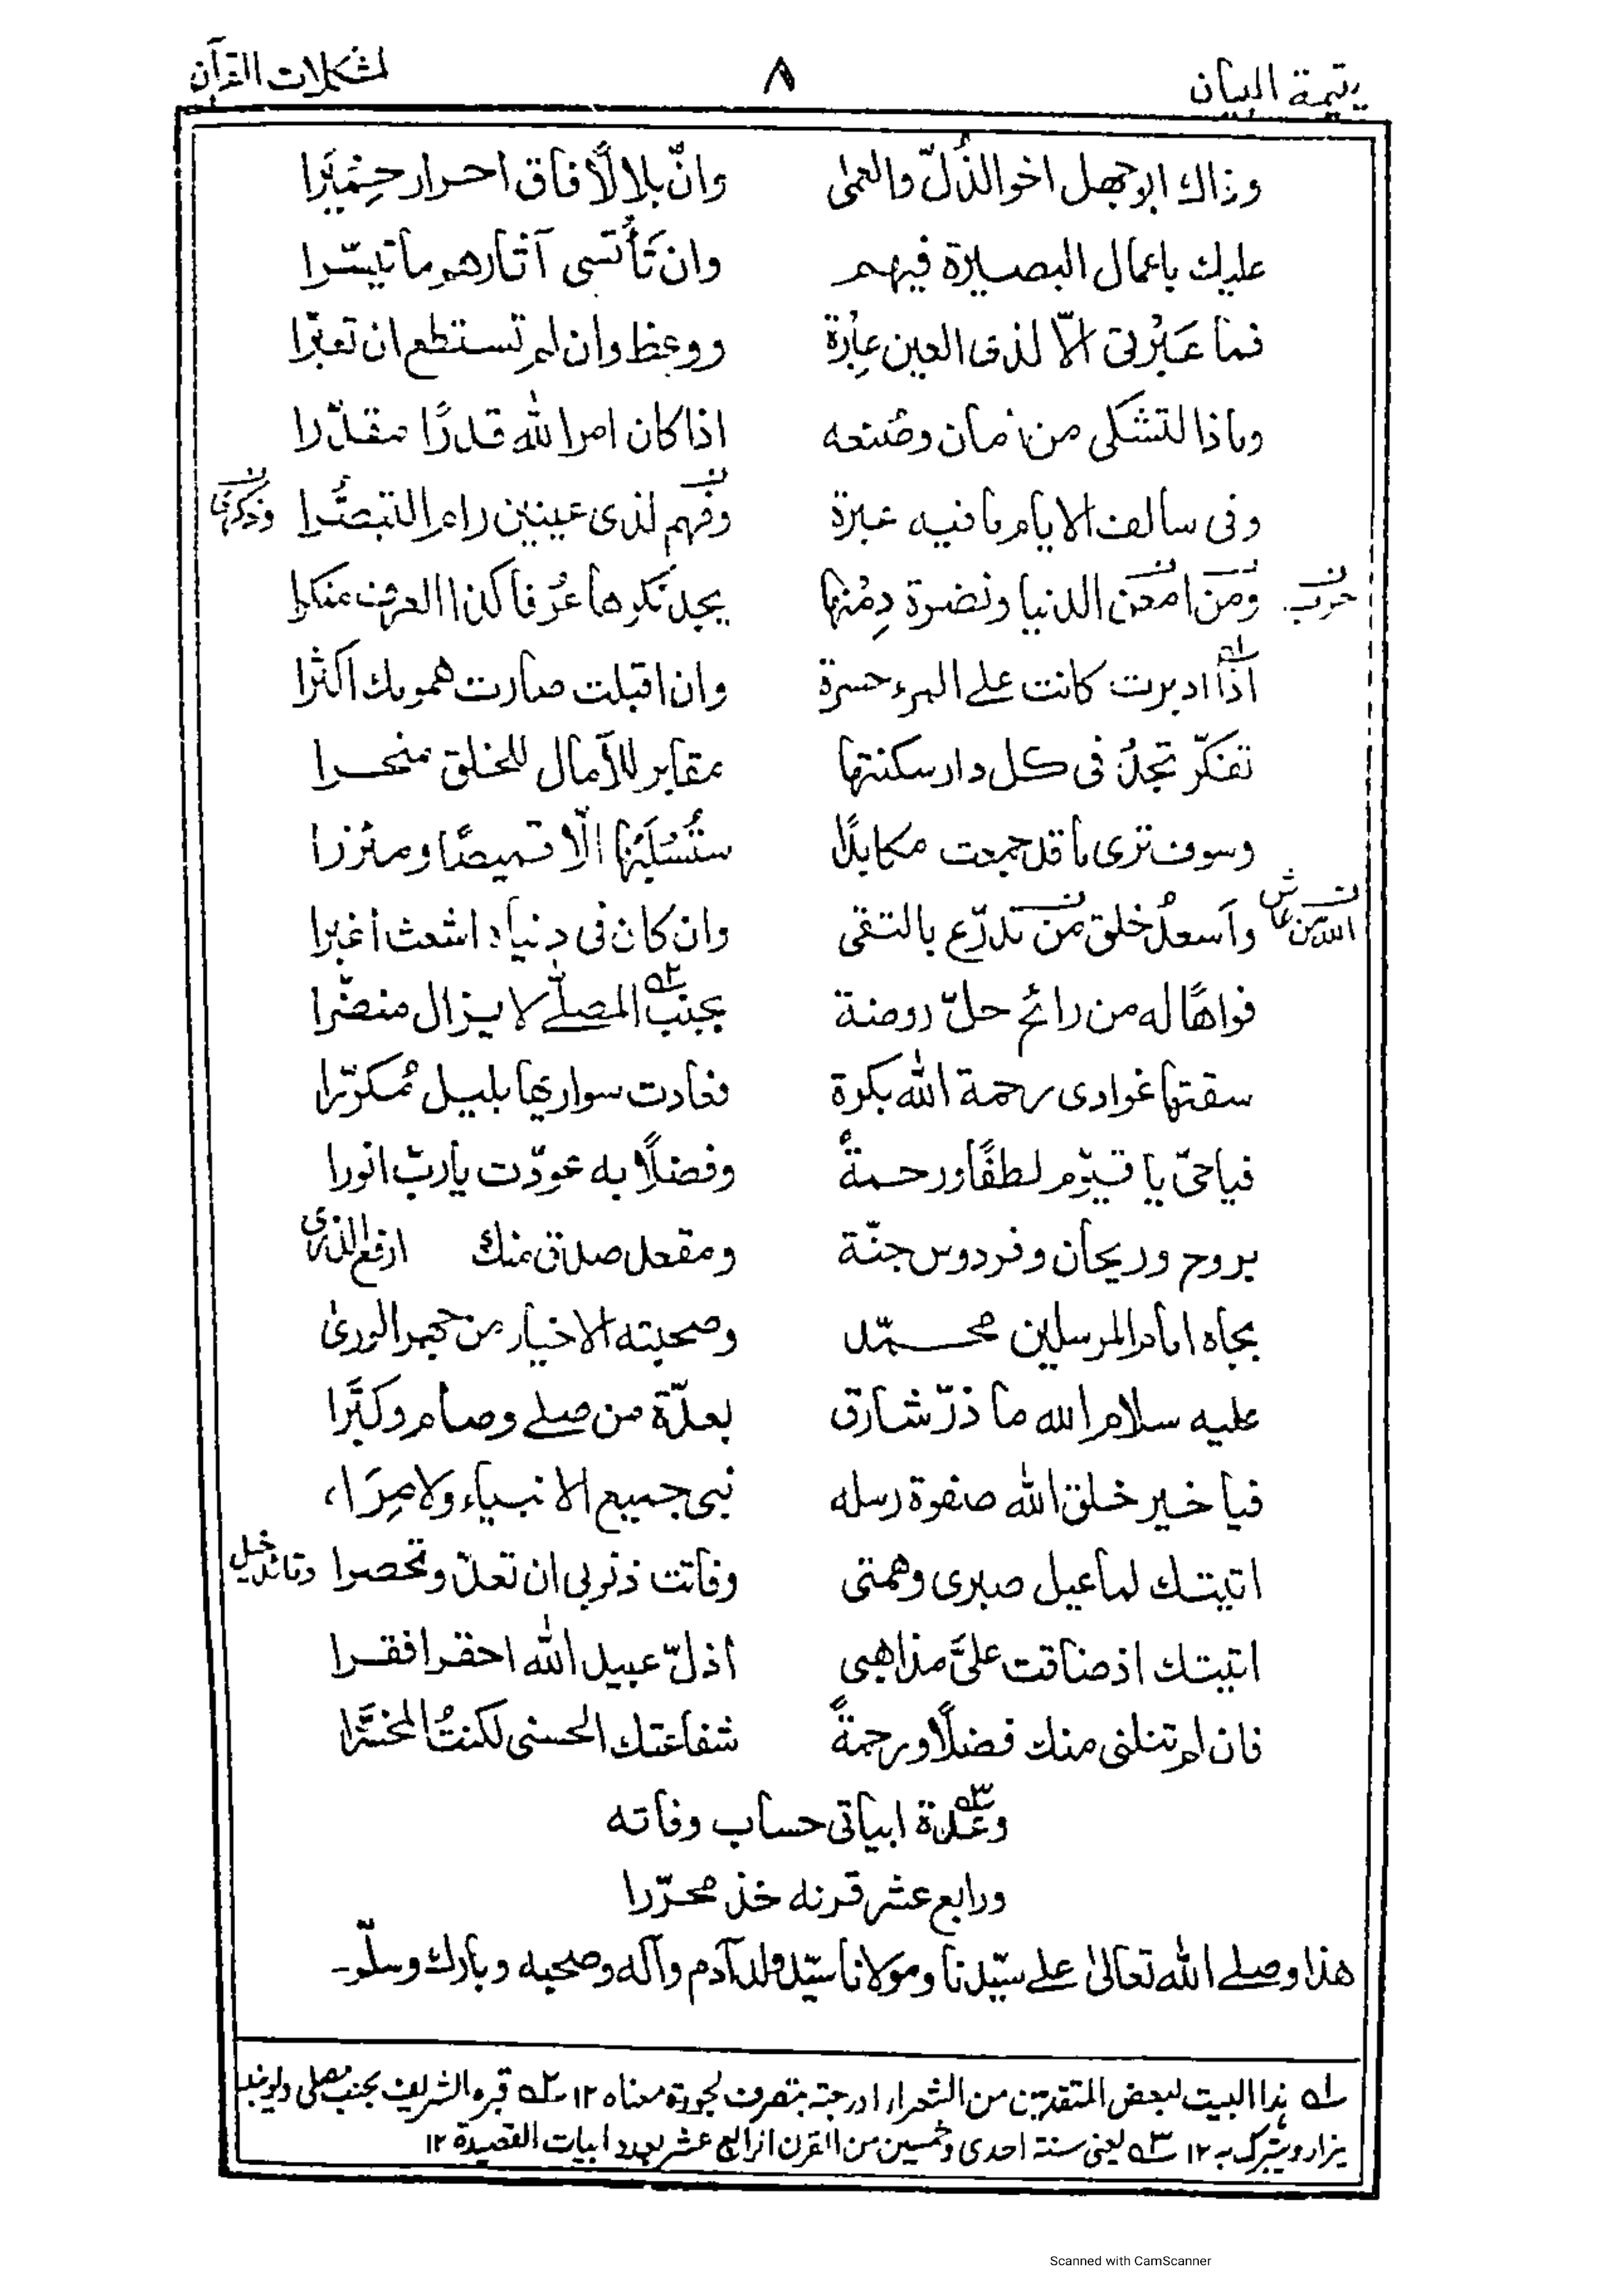 يتيمة البيان ٨ لمشكلات القرآن
وذاك ابوجهل اخوالذُلّ والعمى وانّ بلالًا فاق احرار حِمْيَرا
عليك باعمال البصيرة فيهم وان تَأتسى آثارهم ما تيسّرا
فما عَبْرتى الّا لذى العين عِبْرة ووعظ وان لم تستطع ان تعبّرا
وماذا التشكى من زمان وصُنعه اذا كان امر الله قدرًا مقدّرا
وفى سالف الايام ما فيه عبرة وفهم لذى عينين رام التبصُّرا وذكرى
ومن امعن الدنيا ونضرة دِمْنها يجد نَكرها عُرفا كذا العرف منكرا
اذا ادبرت كانت على المرء حسرة وان اقبلت صارت همومك اكثرا
تفكّر تجدْ فى كل دار سكنتها مقابر للآمال للخلق منحرا
وسوف ترى ما قد جمعت مكابدًا ستُسْلَبُها الّا قميصًا ومئزرا
وأسعدُ خلق من تدرّع بالتقى وان كان فى دنياه اشعث اغبرا
فواهًا له من رائح حلّ روضة بجنب المصلّٰے لا يزال منضّرا
سقتها غوادى رحمة الله بكرة فعادت سواريها بليل مُكرّرا
فياحىّ يا قيّوم لطفًا ورحمةً وفضلًا به عوّدت يارب انورا
بروح وريحان وفردوس جنّة ومقعد صدق منك ارفع الذرى
بجاه امام المرسلين محمّد وصحبته الاخيار من خير الورىٰ
عليه سلام الله ما ذرّ شارق بعدّة من صلے وصام وكبَّرا
فيا خير خلق الله صفوة رسله نبى جميع الانبياء ولا مِرَا،
اتيتك لما عيل صبرى وهمتى وفاتت ذنوبى ان تعدّ وتحصرا
اتيتك اذ ضاقت علىَّ مذاهبى اذلّ عبيد الله احقر افقرا
فان لم تنلنى منك فضلًا ورحمةً شفاعتك الحسنى لكنتُ المخسَّرا
وعدة ابياتى حساب وفاته
ورابع عشر قرنه خذ محرّرا
هذا وصلے الله تعالىٰ علے سيّدنا ومولانا سيّد ولد آدم وآله وصحبه وبارك وسلّم۔
لـ۱ـه هذا البيت لبعض المتقدمين من الشعراء ادرجته بتصرف لجودة معناه ۱۲ ٢ـه قبره الشريف بجنب مصلى ديوبند
يزار ويتبرك به ۱۲ ٣ـه يعنى سنة احدى وخمسين من القرن الرابع عشر بعدد ابيات القصيدة ۱۲
Scanned with CamScanner